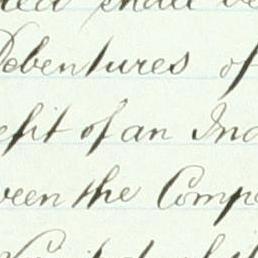 shall be
Debentures of
efit of an Ind
ween the Compa